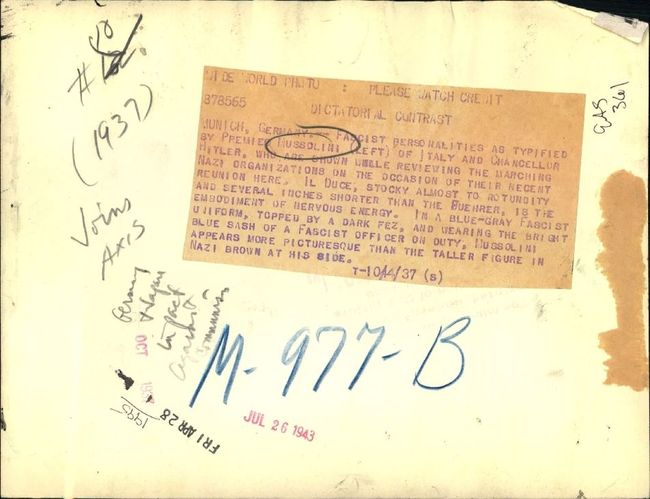 WIDE WORLD PHOTO : PLEASE WATCH CREDIT
878565
DICTATORIAL CONTRAST
MUNICH, GERMANY, - FASCIST PERSONALITIES AS TYPIFIED
BY PREMIER MUSSOLINI (LEFT) OF ITALY AND CHANCELLOR
HITLER, WHO ARE SHOWN WHILE REVIEWING THE MARCHING
NAZI ORGANIZATIONS ON THE OCCASION OF THEIR RECENT
REUNION HERE. IL DUCE, STOCKY ALMOST TO ROTUNDITY
AND SEVERAL INCHES SHORTER THAN THE BUEHRER, IS THE
EMBODIMENT OF NERVOUS ENERGY. IN A BLUE-GRAY FASCIST
UNIFORM, TOPPED BY A DARK FEZ, AND WEARING THE BRIGHT
BLUE SASH OF A FASCIST OFFICER ON DUTY, MUSSOLINI
APPEARS MORE PICTURESQUE THAN THE TALLER FIGURE IN
NAZI BROWN AT HIS SIDE.
T-10/4/37 (S)
GAS
361
#
(1937)
Joins
Axis
Germany
+ Japan
in pact
against
communism
M-977-B
OCT
1995
FRI APR 28
JUL 26 1943